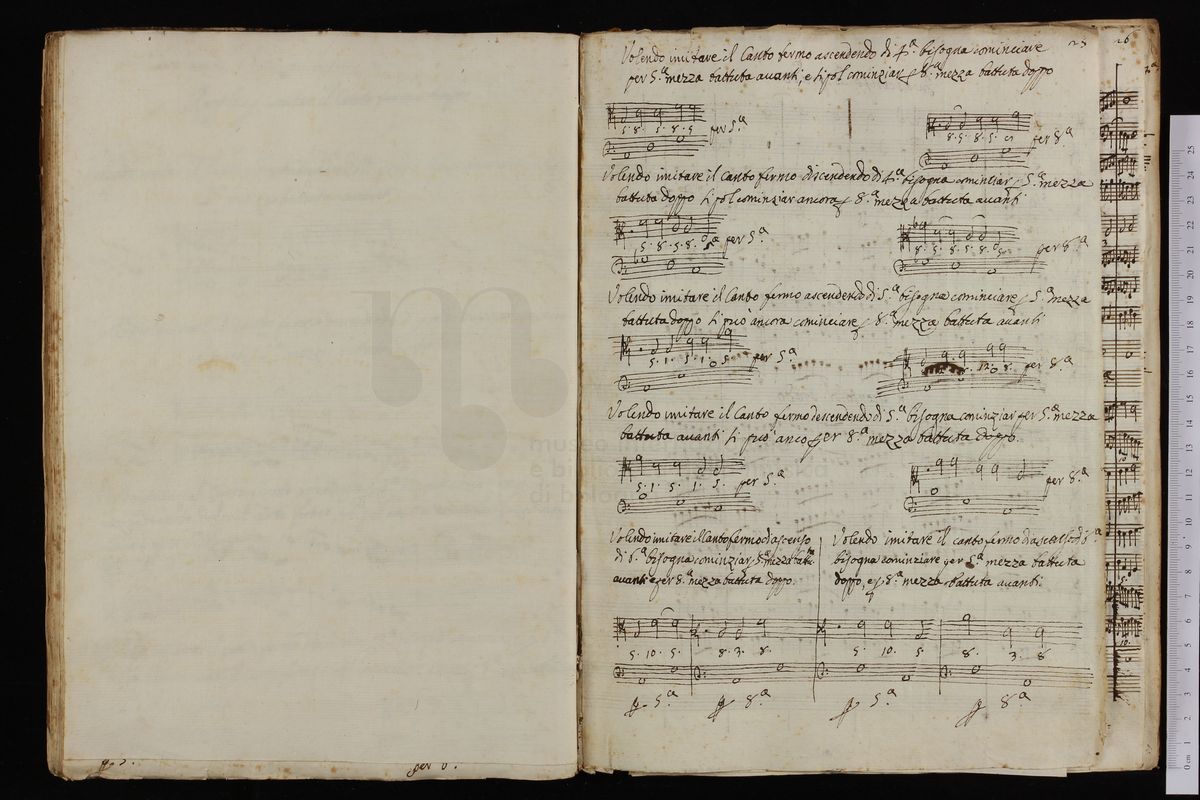 Volendo imitare il Canto fermo ascendendo di 4.ª bisogna cominciare
25
26
per 5.ª mezza battuta avanti, e si pol cominziar 8.ª mezza battuta doppo
5. 8. 5. 8. 5
per 5.ª
8. 5. 8. 5.
per 8.ª
Volendo imitare il Canto fermo discendendo di 4.ª bisogna cominciar 5.ª mezza
battuta doppo si pol cominziar ancora 8.ª mezza battuta avanti
5. 8. 5. 8.
per 5.ª
8. 5. 8. 5. 8.
per 8.ª
Volendo imitare il Canto fermo ascendendo di 5.ª bisogna cominciare 5.ª mezza
battuta doppo si può ancora cominciare 8.ª mezza battuta avanti
5. 1. 5. 1. 5
per 5.ª
per 8.ª
Volendo imitare il Canto fermo descendendo di 5.ª bisogna cominziar per 5.ª mezza
battuta avanti si può anco per 8.ª mezza battuta doppo.
5. 1. 5. 1. 5.
per 5.ª
per 8.ª
Volendo imitare il Canto fermo d'ascenso
di 6.ª bisogna cominziar 5.ª mezza
avanti e per 8.ª mezza battuta doppo.
Volendo imitare il canto fermo di
bisogna cominziare per 5.ª mezza battuta
doppo, e 8.ª mezza battuta avanti.
5. 10. 5. 8. 3. 8. 5. 10. 5. 8. 3. 8
5.ª 8.ª 5.ª 8.ª
museo
e biblio
di bolo